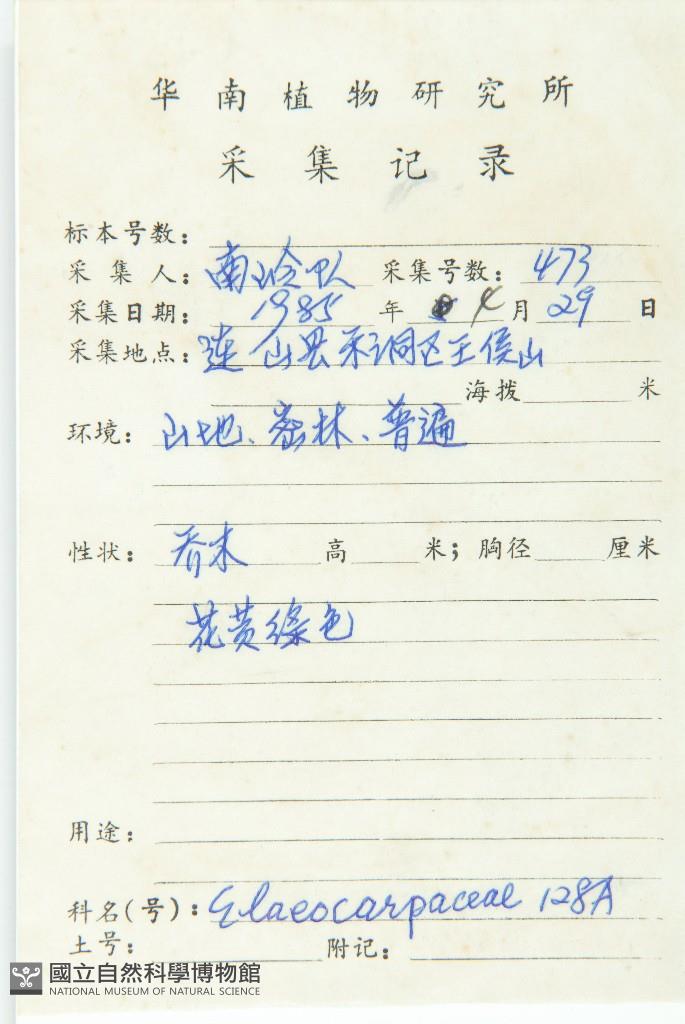 华南植物研究所
采集记录
标本号数：
采集人：南岭队 采集号数：473
采集日期：1985年 4月29日
采集地点：连山县禾洞区王侯山
海拨 米
环境：山地、密林、普遍
性状：乔木 高 米；胸径 厘米
花黄绿色
用途：
科名(号)：Elaeocarpaceae 128A
土号： 附记：
國立自然科學博物館
NATIONAL MUSEUM OF NATURAL SCIENCE